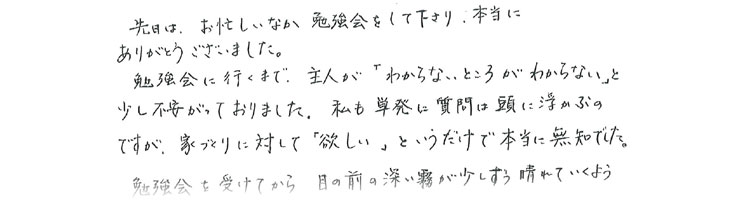 先日は、お忙しいなか勉強会をして下さり、本当に
ありがとうございました。
勉強会に行くまで、主人が「わからないところがわからない」と
少し不安がっておりました。私も単発に質問は頭に浮かぶの
ですが、家づくりに対して「欲しい」というだけで本当に無知でした。
勉強会を受けてから目の前の深い霧が少しずつ晴れていくよう